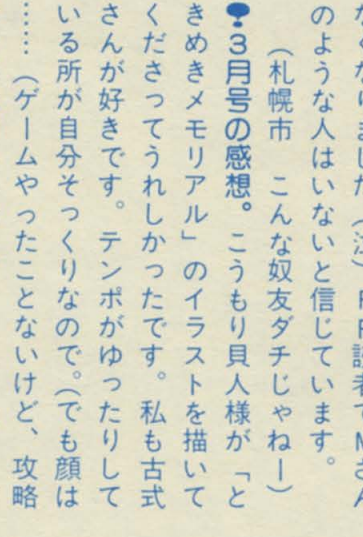 のような人はいないと信じています。
（札幌市　こんな奴友ダチじゃねー）
3月号の感想。こうもり貝人様が「と
きめきメモリアル」のイラストを描いて
くださってうれしかったです。私も古式
さんが好きです。テンポがゆったりして
いる所が自分そっくりなので。（でも顔は
……（ゲームやったことないけど、攻略